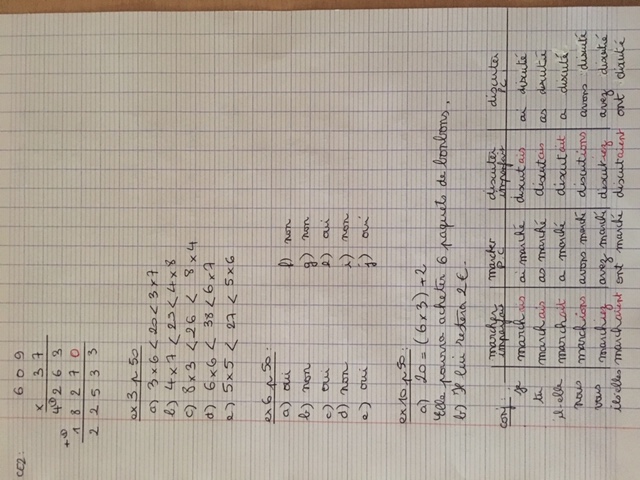 CE2:
6 0 9
x 3 7
4 2 6 3
+ 1 8 2 7 0
2 2 5 3 3
ex 3 p 50:
a) 3 x 6 < 20 < 3 x 7
b) 4 x 7 < 29 < 4 x 8
c) 8 x 3 < 26 < 8 x 4
d) 6 x 6 < 38 < 6 x 7
e) 5 x 5 < 27 < 5 x 6
ex 6 p 50:
a) oui f) non
b) non g) non
c) oui h) oui
d) non i) non
e) oui j) oui
ex 10 p 50:
a) 20 = (6 x 3) + 2
Elle pourra acheter 6 paquets de bonbons.
b) Il lui restera 2 €.
conj: marcher imparfait marcher P.C discuter imparfait discuter P.C
je marchais ai marché discutais ai discuté
tu marchais as marché discutais as discuté
il-elle marchait a marché discutait a discuté
nous marchions avons marché discutions avons discuté
vous marchiez avez marché discutiez avez discuté
ils-elles marchaient ont marché discutaient ont discuté